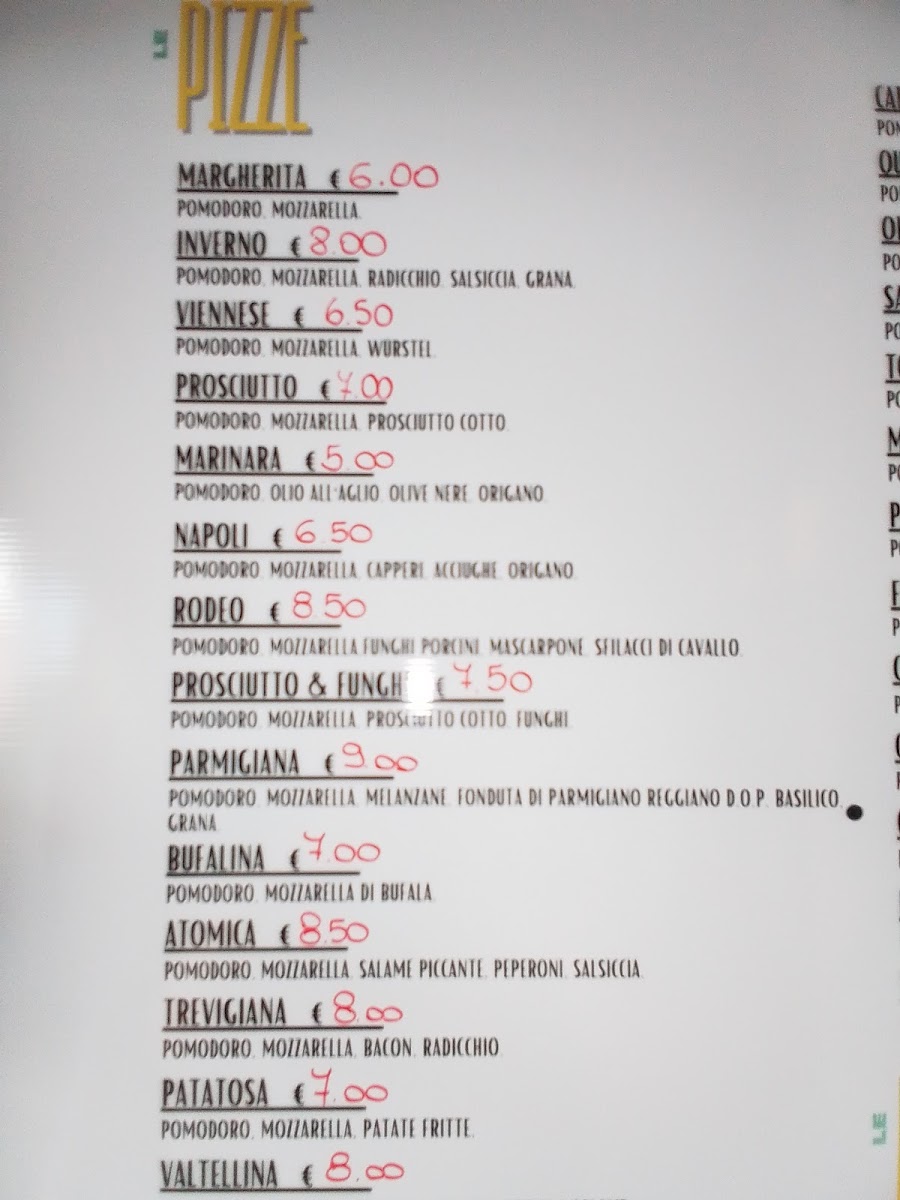 LE PIZZE
MARGHERITA € 6.00
POMODORO, MOZZARELLA.
INVERNO € 8.00
POMODORO, MOZZARELLA, RADICCHIO, SALSICCIA, GRANA.
VIENNESE € 6.50
POMODORO, MOZZARELLA, WURSTEL.
PROSCIUTTO € 7.00
POMODORO, MOZZARELLA, PROSCIUTTO COTTO.
MARINARA € 5.00
POMODORO, OLIO ALL'AGLIO, OLIVE NERE, ORIGANO.
NAPOLI € 6.50
POMODORO, MOZZARELLA, CAPPERI, ACCIUGHE, ORIGANO.
RODEO € 8.50
POMODORO, MOZZARELLA FUNGHI PORCINI, MASCARPONE, SFILACCI DI CAVALLO.
PROSCIUTTO & FUNGHI € 7.50
POMODORO, MOZZARELLA, PROSCIUTTO COTTO, FUNGHI.
PARMIGIANA € 9.00
POMODORO, MOZZARELLA, MELANZANE, FONDUTA DI PARMIGIANO REGGIANO D.O.P., BASILICO,
GRANA.
BUFALINA € 7.00
POMODORO, MOZZARELLA DI BUFALA.
ATOMICA € 8.50
POMODORO, MOZZARELLA, SALAME PICCANTE, PEPERONI, SALSICCIA.
TREVIGIANA € 8.00
POMODORO, MOZZARELLA, BACON, RADICCHIO
PATATOSA € 7.00
POMODORO, MOZZARELLA, PATATE FRITTE.
VALTELLINA € 8.00
LE